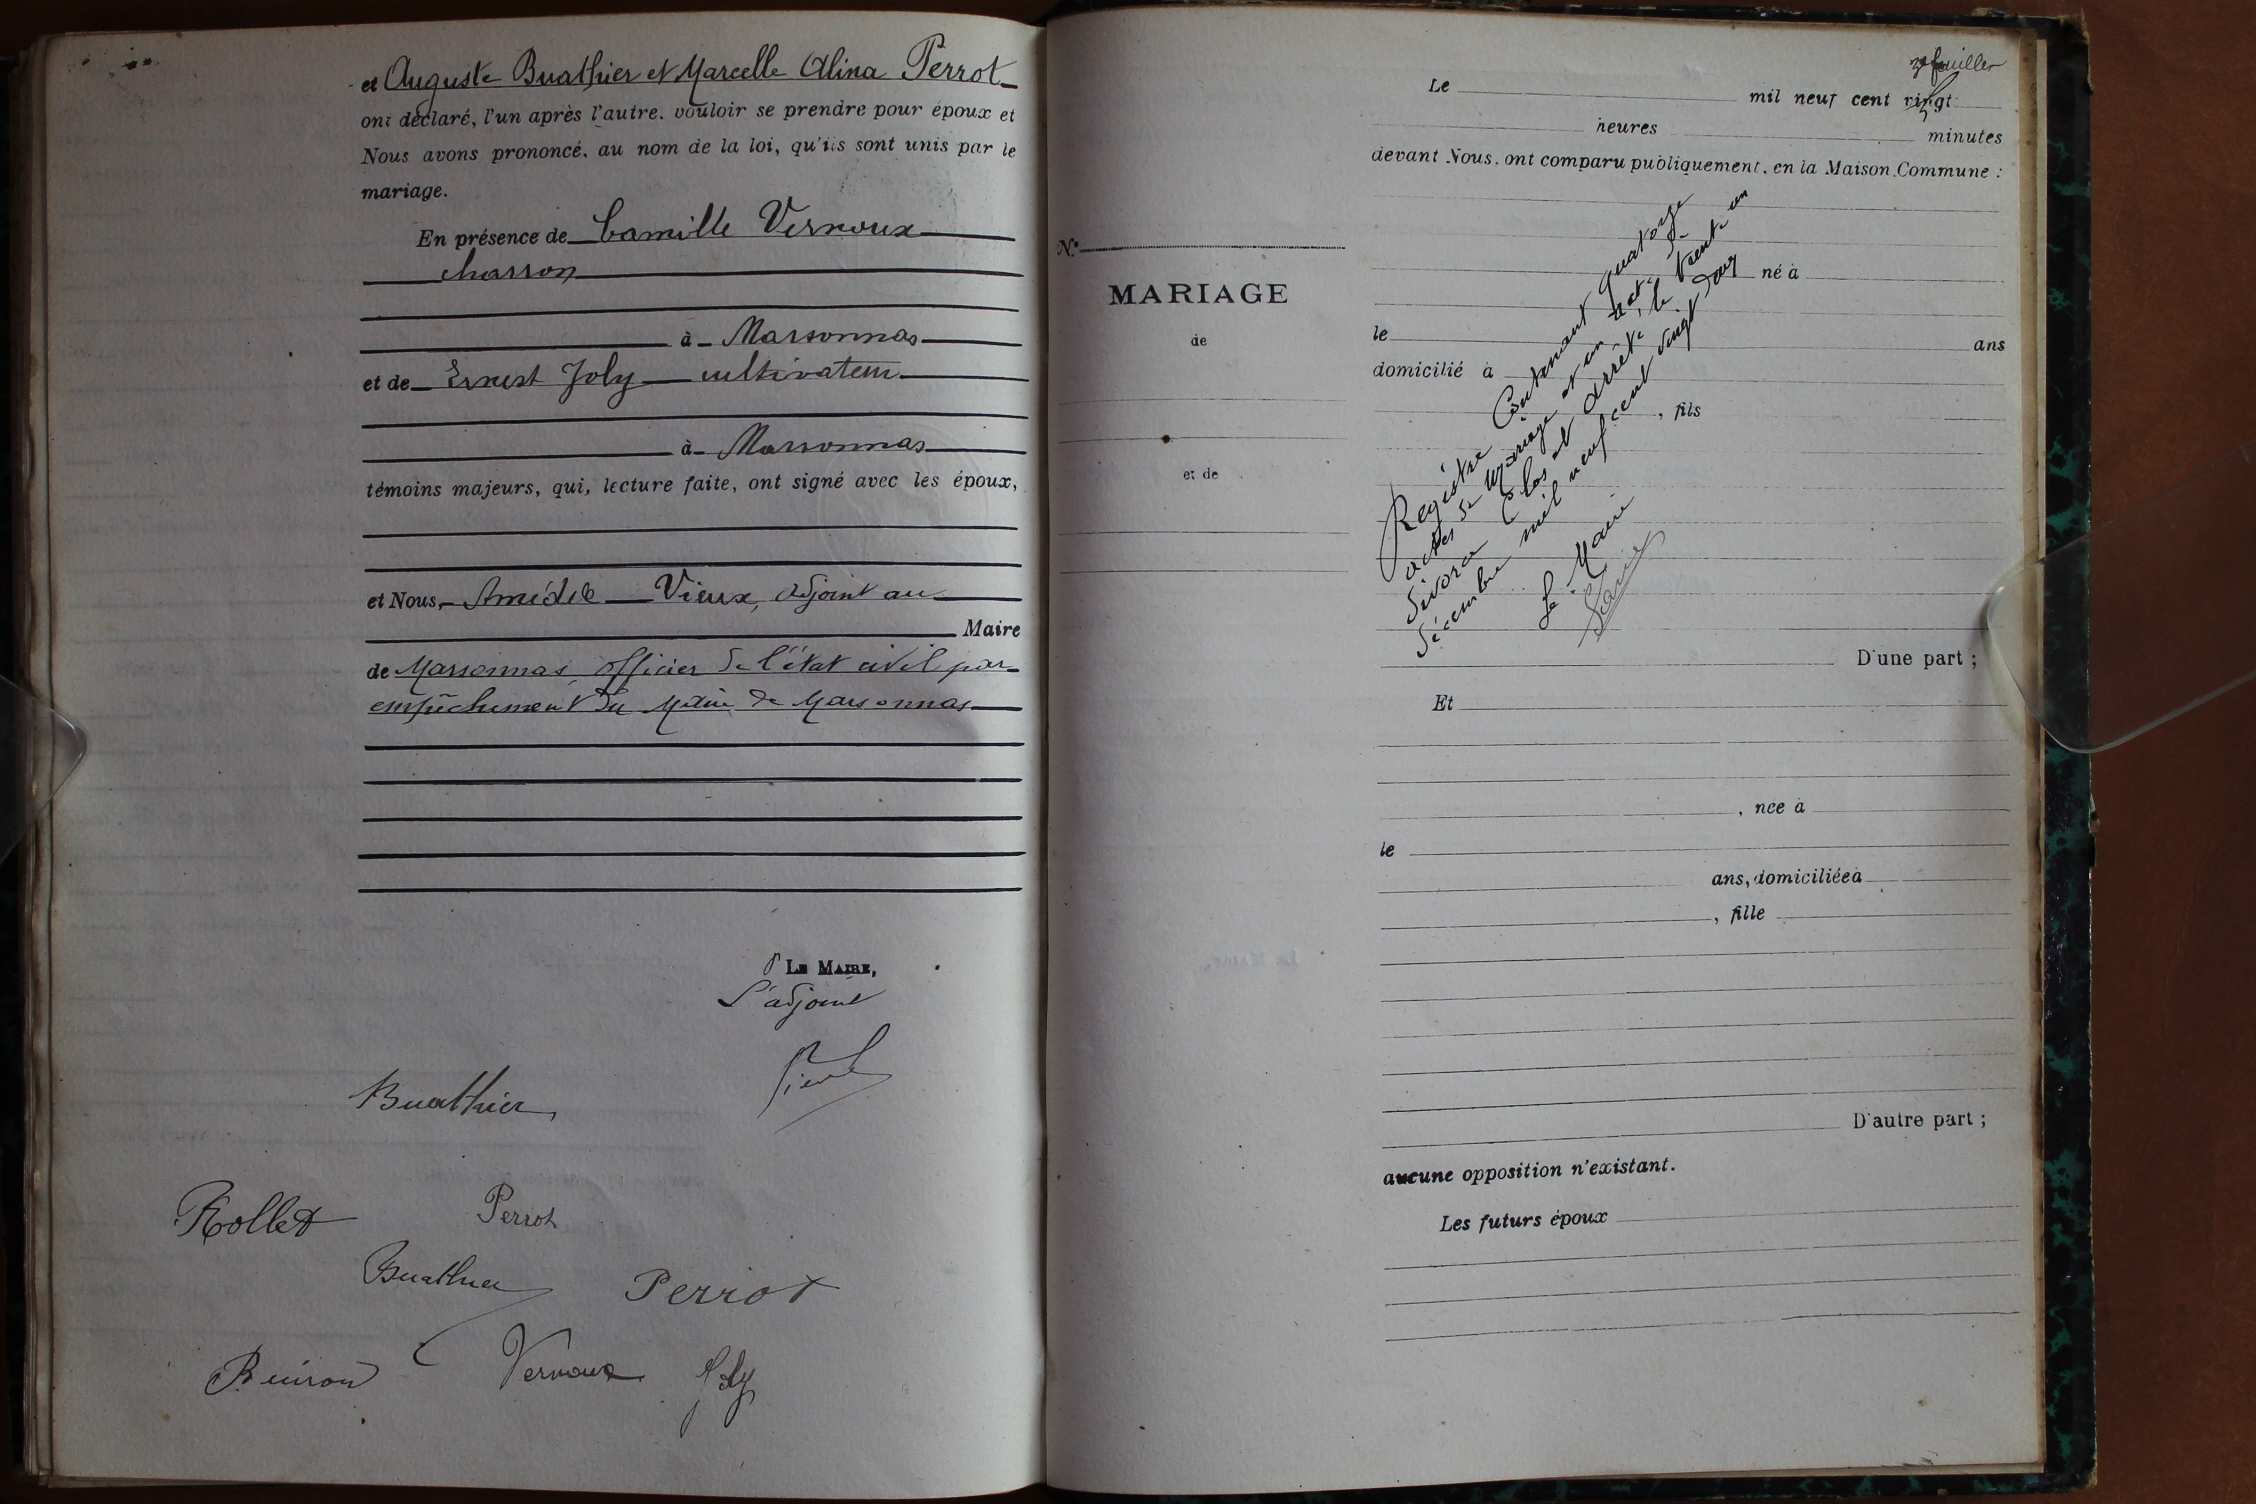 et Auguste Buathier et Marcelle Alina Perrot
ont déclaré, l'un après l'autre, vouloir se prendre pour époux et
Nous avons prononcé, au nom de la loi, qu'ils sont unis par le
mariage.
En présence de Camille Vernoux
charron
à Marsonnas
et de Ernest Joly cultivateur
à Marsonnas
témoins majeurs, qui, lecture faite, ont signé avec les époux,
et Nous, Amédée Vieux, adjoint au
Maire
de Marsonnas, officier de l'état civil par
empêchement du Maire de Marsonnas
P LE MAIRE,
L'adjoint
Vieux
Buathier
Rollet
Perrot
Buathier
Perrot
Buiron
Vernoux
Joly
feuillet
Le mil neuf cent vingt
heures minutes
devant Nous, ont comparu publiquement, en la Maison Commune :
N.°
MARIAGE
de
et de
né à
le ans
domicilié à
, fils
Registre Contenant quatorze
actes de Mariage et un acte de
divorce Clos et arrêté le trente un
décembre mil neuf cent vingt
Le Maire
D'une part ;
Et
, née à
le
ans, domiciliée à
, fille
D'autre part ;
aucune opposition n'existant.
Les futurs époux